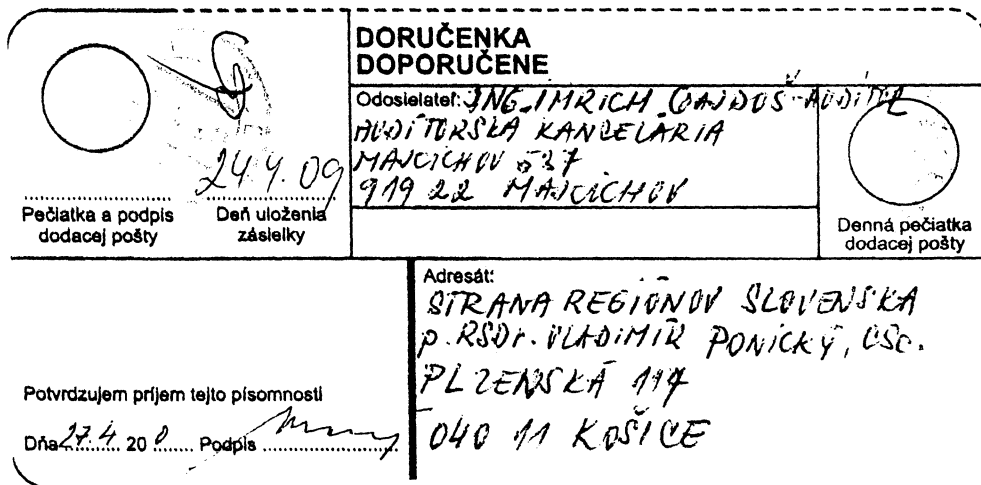 DORUČENKA
DOPORUČENE
Odosielateľ: ING. IMRICH GAJDOŠ-AUDÍTOR
AUDÍTORSKA KANCELÁRIA
MAJCICHOV 537
919 22 MAJCICHOV
24.4.09
Pečiatka a podpis
dodacej pošty
Deň uloženia
zásielky
Denná pečiatka
dodacej pošty
Adresát:
STRANA REGIÓNOV SLOVENSKA
p. RSDr. VLADIMÍR PONICKÝ, CSc.
PLZENSKÁ
040 11 KOŠICE
Potvrdzujem príjem tejto písomnosti
Dňa 27.4. 20 Podpis